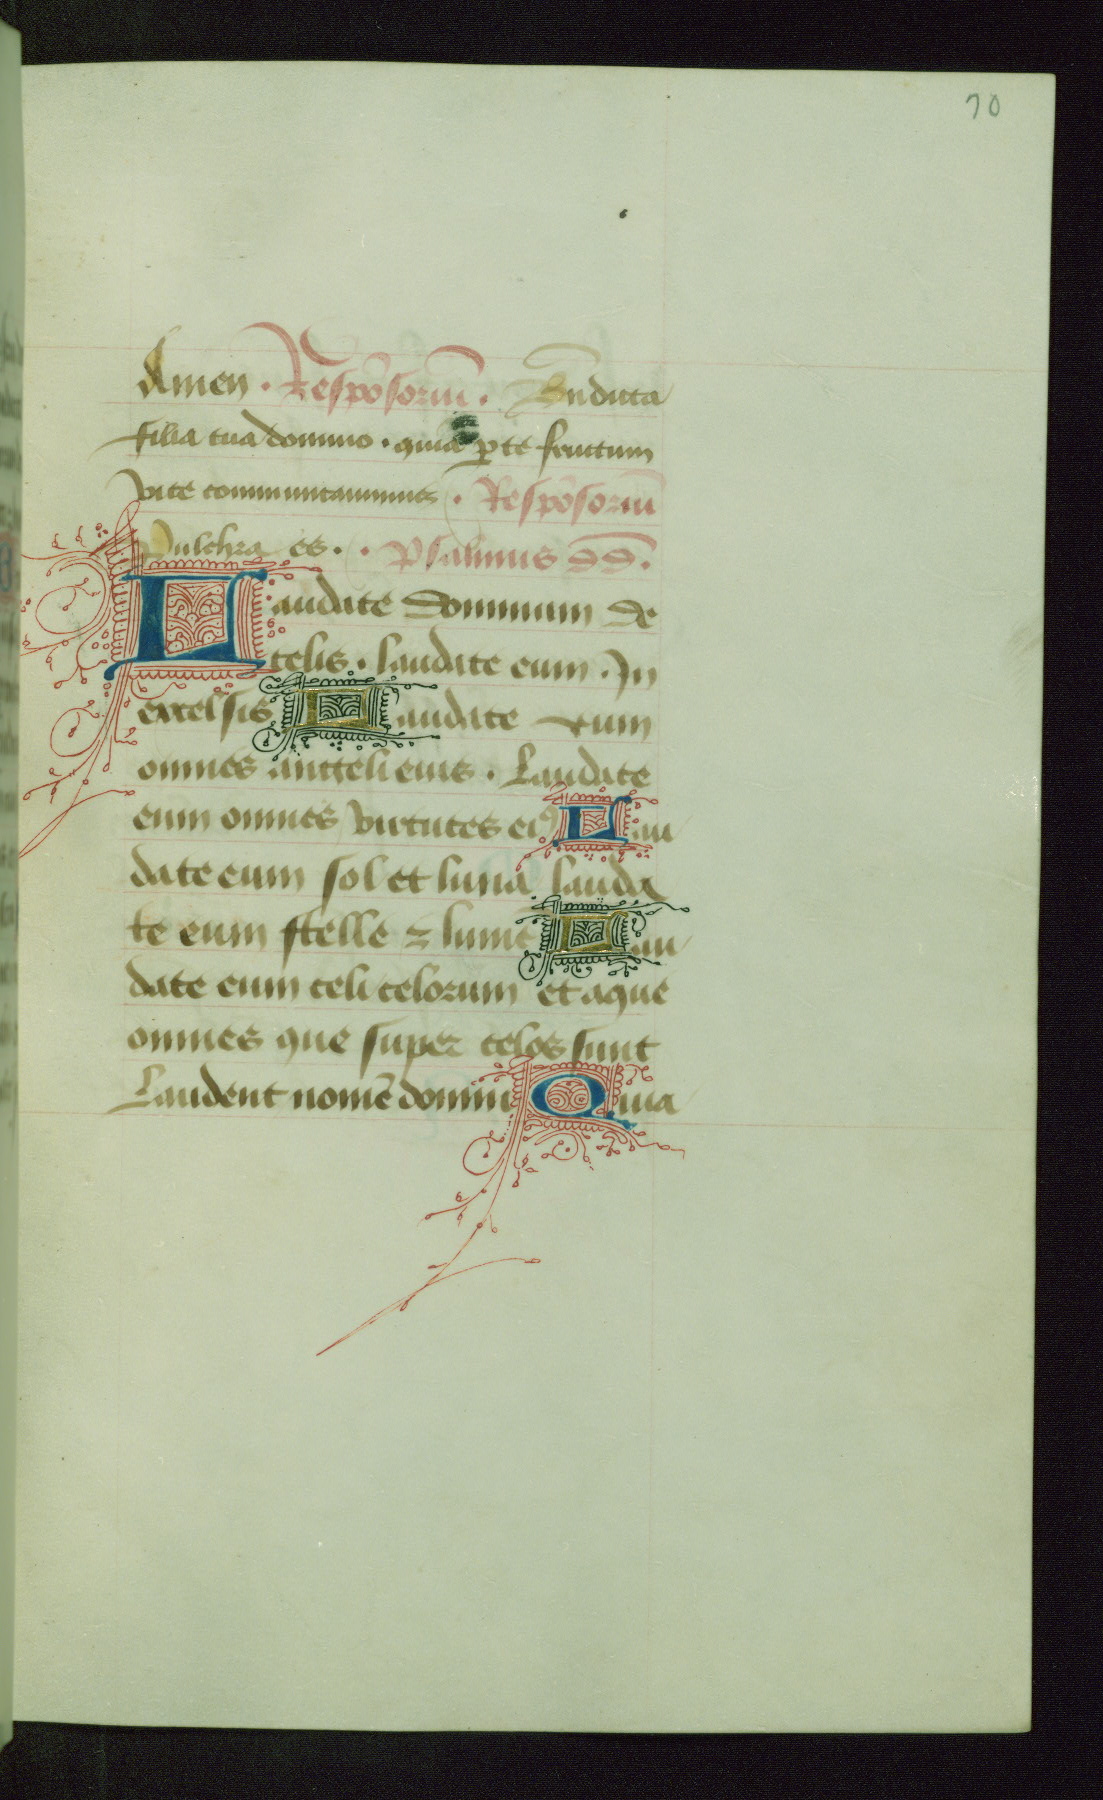 70
Amen · Respōsoriū · Bn̄dicta
filia tua domino · quia ꝑ te fructum
vite communicauimus · Respōsoriū
Pulchra es · · Psalmus dd̄ ·
Laudate dominum de
celis · laudate eum · In
excelsis Laudate eum
omnes angeli eius · Laudate
eum omnes virtutes eiꝰ Lau
date eum sol et luna lauda
te eum stelle ⁊ lumē Lau
date eum celi celorum et aque
omnes que super celos sunt
Laudent nomē domini Quia